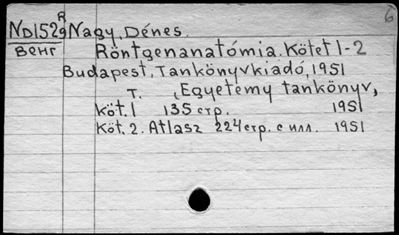 R 6
ND1529 Nagy, Dénes.
Венг Röntgenanatómia. Kötet 1-2
Budapest, Tankönyvkiadó, 1951
т. (Egyetemy tankönyv,
Köt. 1 135 стр. 1951
Köt. 2. Atlasz 224 стр. с илл. 1951